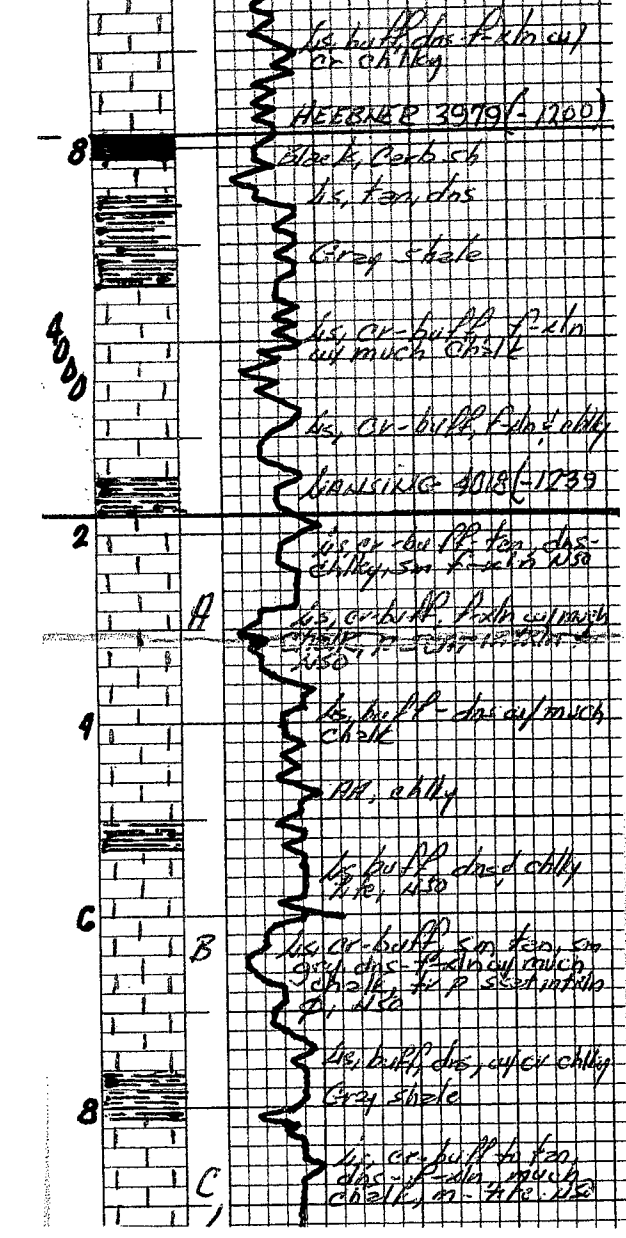 Ls, buff, dns-f-xln w/
cr chlky
HEEBNER 3979 (-1200)
8
Black, Carb sh
Ls, tan, dns
Gray shale
4000
Ls, cr-buff, f-xln
w/ much chalk
Ls, cr-buff, f-dns & chlky
LANSING 4018 (-1239
2
Ls, cr-buff, tan, dns-
chlky, sm f-xln NSO
A
Ls, cr-buff, f-xln w/ much
NSO
Ls, buff - dns w/ much
chalk
4
AA, chlky
Ls buff dns & chlky
tite, NSO
6
B
Ls, cr-buff, sm tan, sm
gry, dns-f-xln w/ much
chalk, tr p
NSO
Ls, buff, dns, w/ cr chlky
Gray shale
8
Ls, cr-buff to tan,
dns-f-xln, much
chalk, n-tite NSO
C